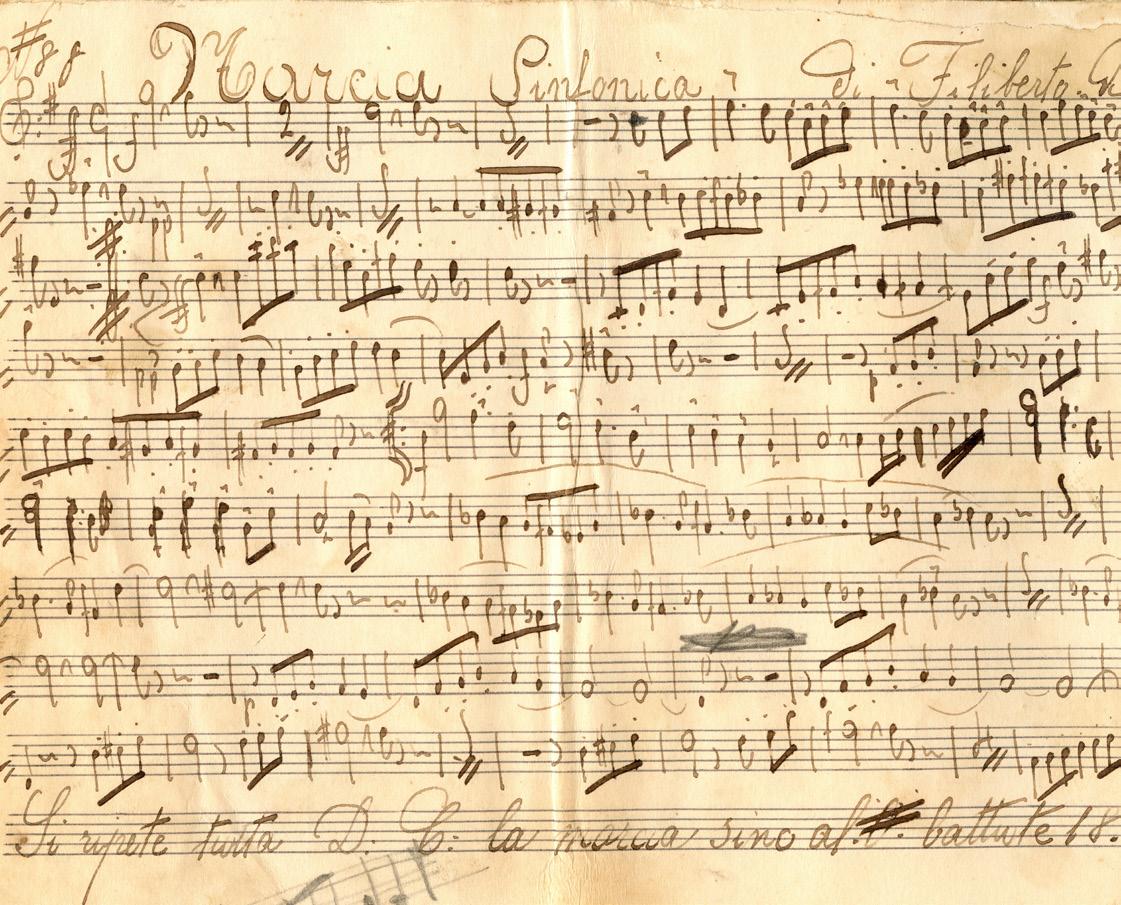 Marcia Sinfonica di Filiberto
Si ripete tutta D. C. la marcia sino al battute 18.